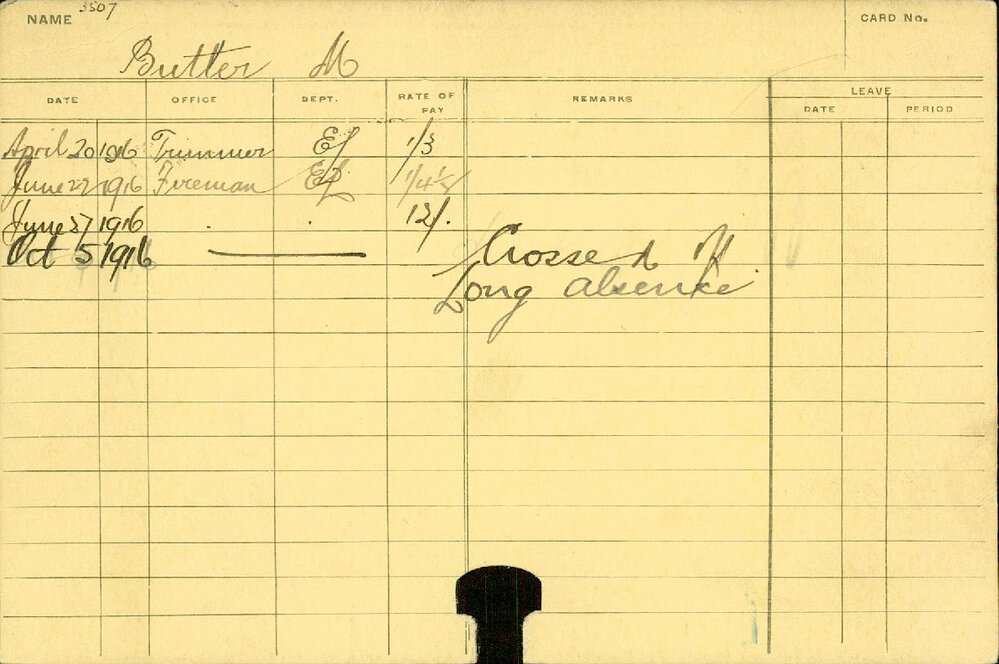 NAME 3507
CARD No.
Butler M
DATE OFFICE DEPT. RATE OF PAY REMARKS LEAVE
DATE PERIOD
April 20 1916 Trimmer EL 1/3
June 22 1916 Fireman EL 1/4½
June 27 1916 . . 12/.
Oct 5 1916 —— Crossed off
Long absence